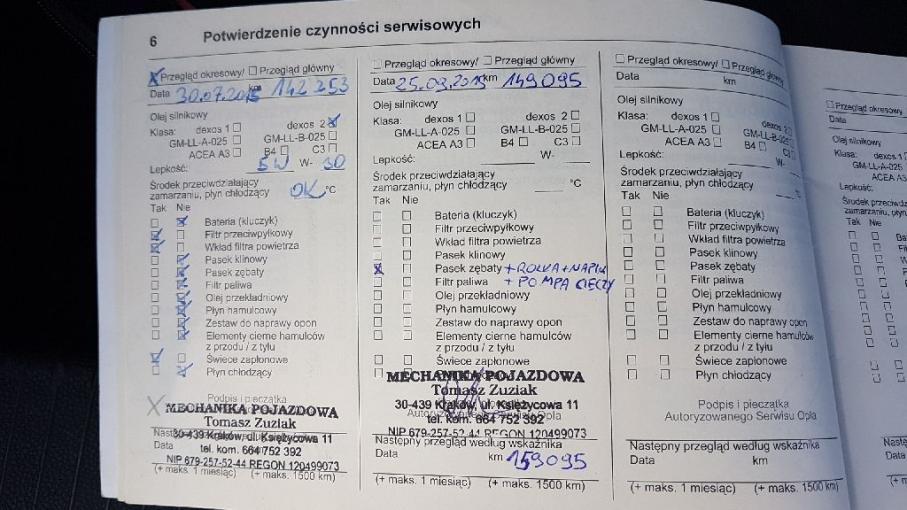 6 Potwierdzenie czynności serwisowych
X Przegląd okresowy/ Przegląd główny
Data 30.07.2015 km 142 253
Olej silnikowy
Klasa: dexos 1 dexos 2 X
GM-LL-A-025 GM-LL-B-025
ACEA A3 B4 C3
Lepkość: 5W W- 30
Środek przeciwdziałający
zamarzaniu, płyn chłodzący OK °C
Tak Nie
Bateria (kluczyk)
Filtr przeciwpyłkowy
Wkład filtra powietrza
Pasek klinowy
Pasek zębaty
Filtr paliwa
Olej przekładniowy
Płyn hamulcowy
Zestaw do naprawy opon
Elementy cierne hamulców
z przodu / z tyłu
Świece zapłonowe
Płyn chłodzący
Podpis i pieczątka
X MECHANIKA POJAZDOWA
Tomasz Zuziak
30-439 Kraków, ul. Księżycowa 11
tel. kom. 664 752 392
NIP 679-257-52-44 REGON 120499073
(+ maks. 1 miesiąc) (+ maks. 1500 km)
Przegląd okresowy/ Przegląd główny
Data 25.09.2015 km 149095
Olej silnikowy
Klasa: dexos 1 dexos 2
GM-LL-A-025 GM-LL-B-025
ACEA A3 B4 C3
Lepkość: W-
Środek przeciwdziałający
zamarzaniu, płyn chłodzący °C
Tak Nie
Bateria (kluczyk)
Filtr przeciwpyłkowy
Wkład filtra powietrza
Pasek klinowy
X Pasek zębaty + ROLKA + NAPIN
Filtr paliwa + POMPA CIECZY
Olej przekładniowy
Płyn hamulcowy
Zestaw do naprawy opon
Elementy cierne hamulców
z przodu / z tyłu
Świece zapłonowe
MECHANIKA POJAZDOWA
Tomasz Zuziak
30-439 Kraków, ul. Księżycowa 11
tel. kom. 664 752 392
NIP 679-257-52-44 REGON 120499073
Następny przegląd według wskaźnika
Data km 159095
(+ maks. 1 miesiąc) (+ maks. 1500 km)
Przegląd okresowy/ Przegląd główny
Data km
Olej silnikowy
Klasa: dexos 1 dexos 2
GM-LL-A-025 GM-LL-B-025
ACEA A3 B4 C3
Lepkość: W-
Środek przeciwdziałający
zamarzaniu, płyn chłodzący °C
Tak Nie
Bateria (kluczyk)
Filtr przeciwpyłkowy
Wkład filtra powietrza
Pasek klinowy
Pasek zębaty
Filtr paliwa
Olej przekładniowy
Płyn hamulcowy
Zestaw do naprawy opon
Elementy cierne hamulców
z przodu / z tyłu
Świece zapłonowe
Płyn chłodzący
Podpis i pieczątka
Autoryzowanego Serwisu Opla
Następny przegląd według wskaźnika
Data km
(+ maks. 1 miesiąc) (+ maks. 1500 km)
Przegląd okresowy
Data
Olej silnikowy
Klasa: dexos 1
GM-LL-A-025
ACEA A3
Lepkość:
Tak Nie
Data